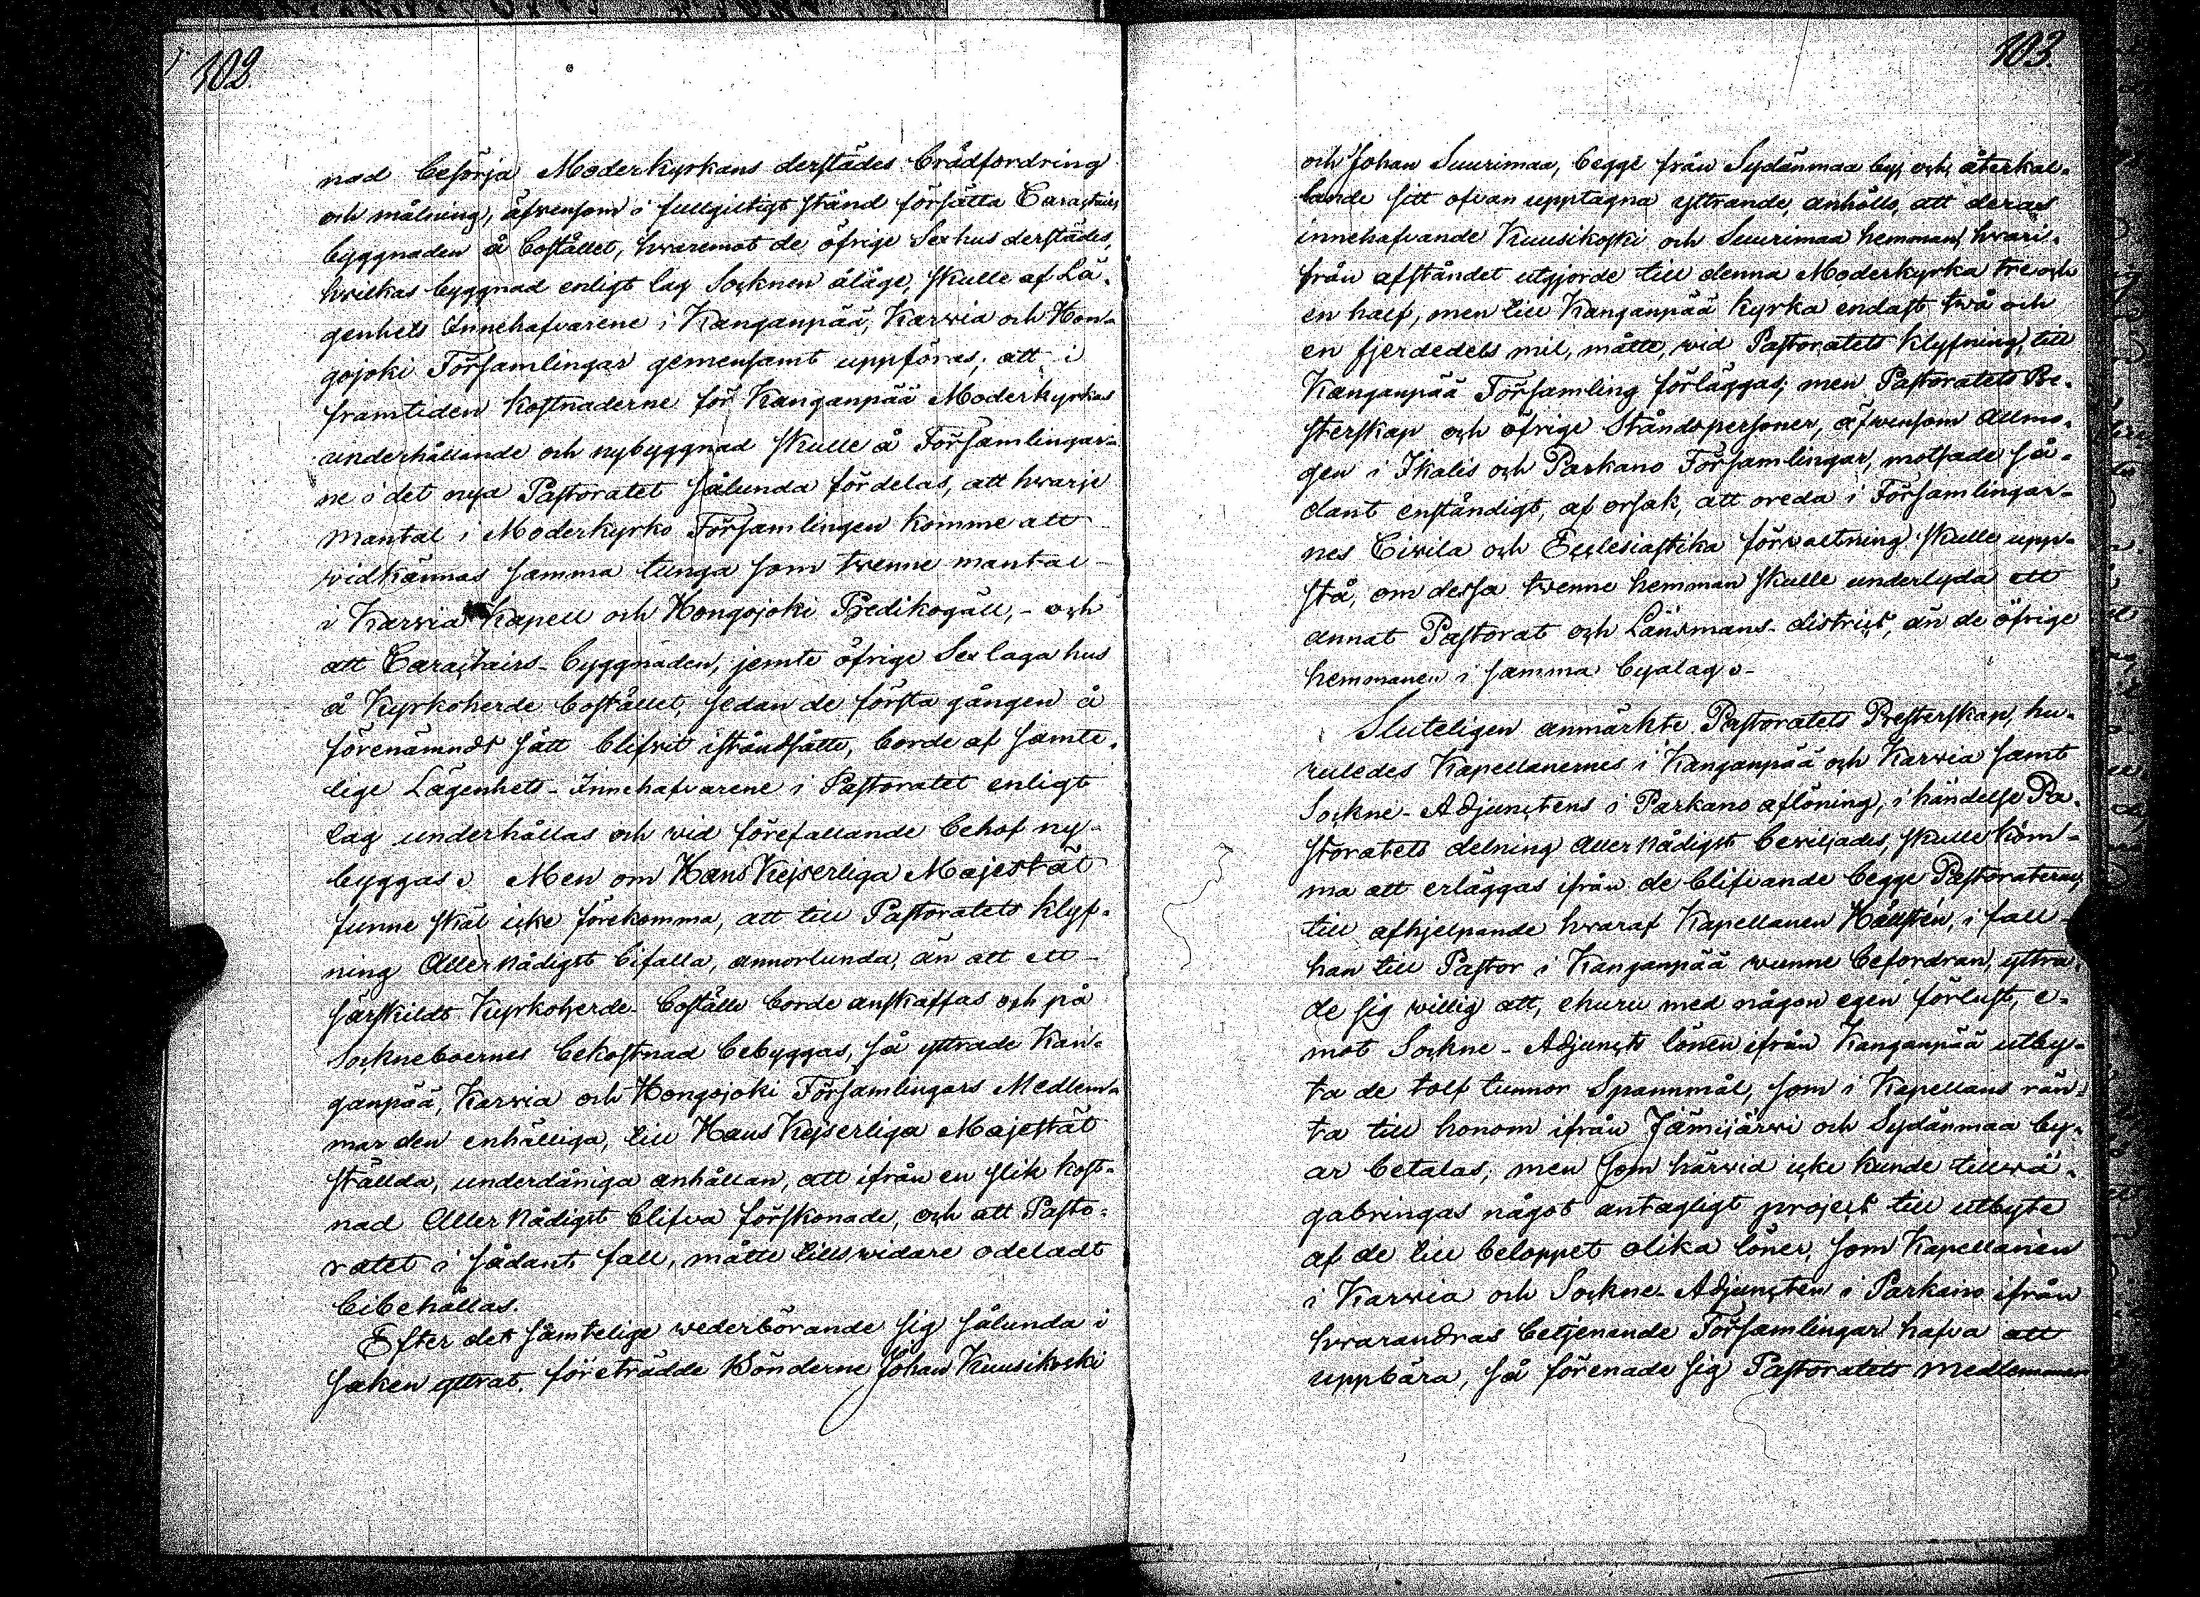 102.
nad besörja Moderkyrkans derstädes brädfordring
och målning, äfvensom i fullgiltigt stånd försätta Caractairs
byggnaden å bostället, hvaremot de öfrige Sexhus derstädes,
hvilkas byggnad enligt lag Socknen åläge, skulle af Lä-
genhets Innehafvarene i Kanganpää, Karvia och Hon-
gojoki Församlingar gemensamt uppföras; att i
framtiden kostnaderne för Kanganpää Moderkyrkas
underhållande och nybyggnad skulle å Församlingar-
ne i det nya Pastoratet sålunda fördelas, att hvarje
mantal i Moderkyrko Församlingen komme att
vidkännas samma tunga som tvenne mantal
i Karvia Kapell och Hongojoki Predikogäll, - och
att Caractairs-byggnaden, jemte öfrige Sex laga hus
å Kyrkoherde bostället, sedan de första gången å
förenämndt sätt blifvit iståndsatte, borde af samte-
lige Lägenhets-Innehafvarene i Pastoratet enligt
lag underhållas och vid förefallande behof ny-
byggas. Men om Hans Kejserliga Majestät
funne skäl icke förekomma, att till Pastoratets klyf-
ning Aller Nådigst bifalla, annorlunda, än att ett
särskildt Kyrkoherde-Boställe borde anskaffas och på
Sockneboernes bekostnad bebyggas, så yttrade Kan-
ganpää, Karvia och Hongojoki Församlingars Medlem-
mar den enhälliga, till Hans Kejserliga Majestät
ställda, underdåniga anhållan, att ifrån en slik kost-
nad Aller Nådigst blifva förskonade, och att Pasto-
ratet i sådant fall, måtte tillsvidare odeladt
bibehållas.
Efter det samtelige vederbörande sig sålunda i
saken yttrat, företrädde Bönderne Johan Kuusikoski
103.
och Johan Suurimaa, begge från Sydänmaa by, och, återkal-
lande sitt ofvan upptagna yttrande, anhöllo, att deras
innehafvande Kuusikoski och Suurimaa hemman, hvari-
från afståndet utgjorde till denna Moderkyrka tre och
en half, men till Kanganpää kyrka endast två och
en fjerdedels mil, måtte, vid Pastoratets klyfning, till
Kanganpää Församling förläggas; men Pastoratets Pre-
sterskap och öfrige Ståndspersoner, äfvensom allmo-
gen i Ikalis och Parkano Församlingar, motsade så-
dant enständigt, af orsak, att oreda i Församlingar-
nes Civila och Ecclesiastika förvaltning skulle upp-
stå, om dessa tvenne hemman skulle underlyda ett
annat Pastorat och Länsmans-district, än de öfrige
hemmanen i samma byalag.
Sluteligen anmärkte Pastoratets Presterskap, hu-
ruledes Kapellanernes i Kanganpää och Karvia samt
Sockne-Adjunctens i Parkano aflöning, i händelse Pa-
storatets delning Aller Nådigst beviljades, skulle kom-
ma att erläggas ifrån de blifvande begge Pastoraterne,
till afhjelpande hvaraf Kapellanen Hällstén, i fall
han till Pastor i Kanganpää vunne befordran, yttra-
de sig villig att, ehuru med någon egen förlust, e-
mot Sockne-Adjuncts lönen ifrån Kanganpää utby-
ta de tolf tunnor Spannmål, som i Kapellans rän-
ta till honom ifrån Jämijärvi och Sydänmaa by-
ar betalas; men som härvid icke kunde tillvä-
gabringas något antagligt project till utbyte
af de till beloppet olika löner, som Kapellanen
i Karvia och Sockne-Adjuncten i Parkano ifrån
hvarandras betjenande Församlingar hafva att
uppbära, så förenade sig Pastoratets medlemmar